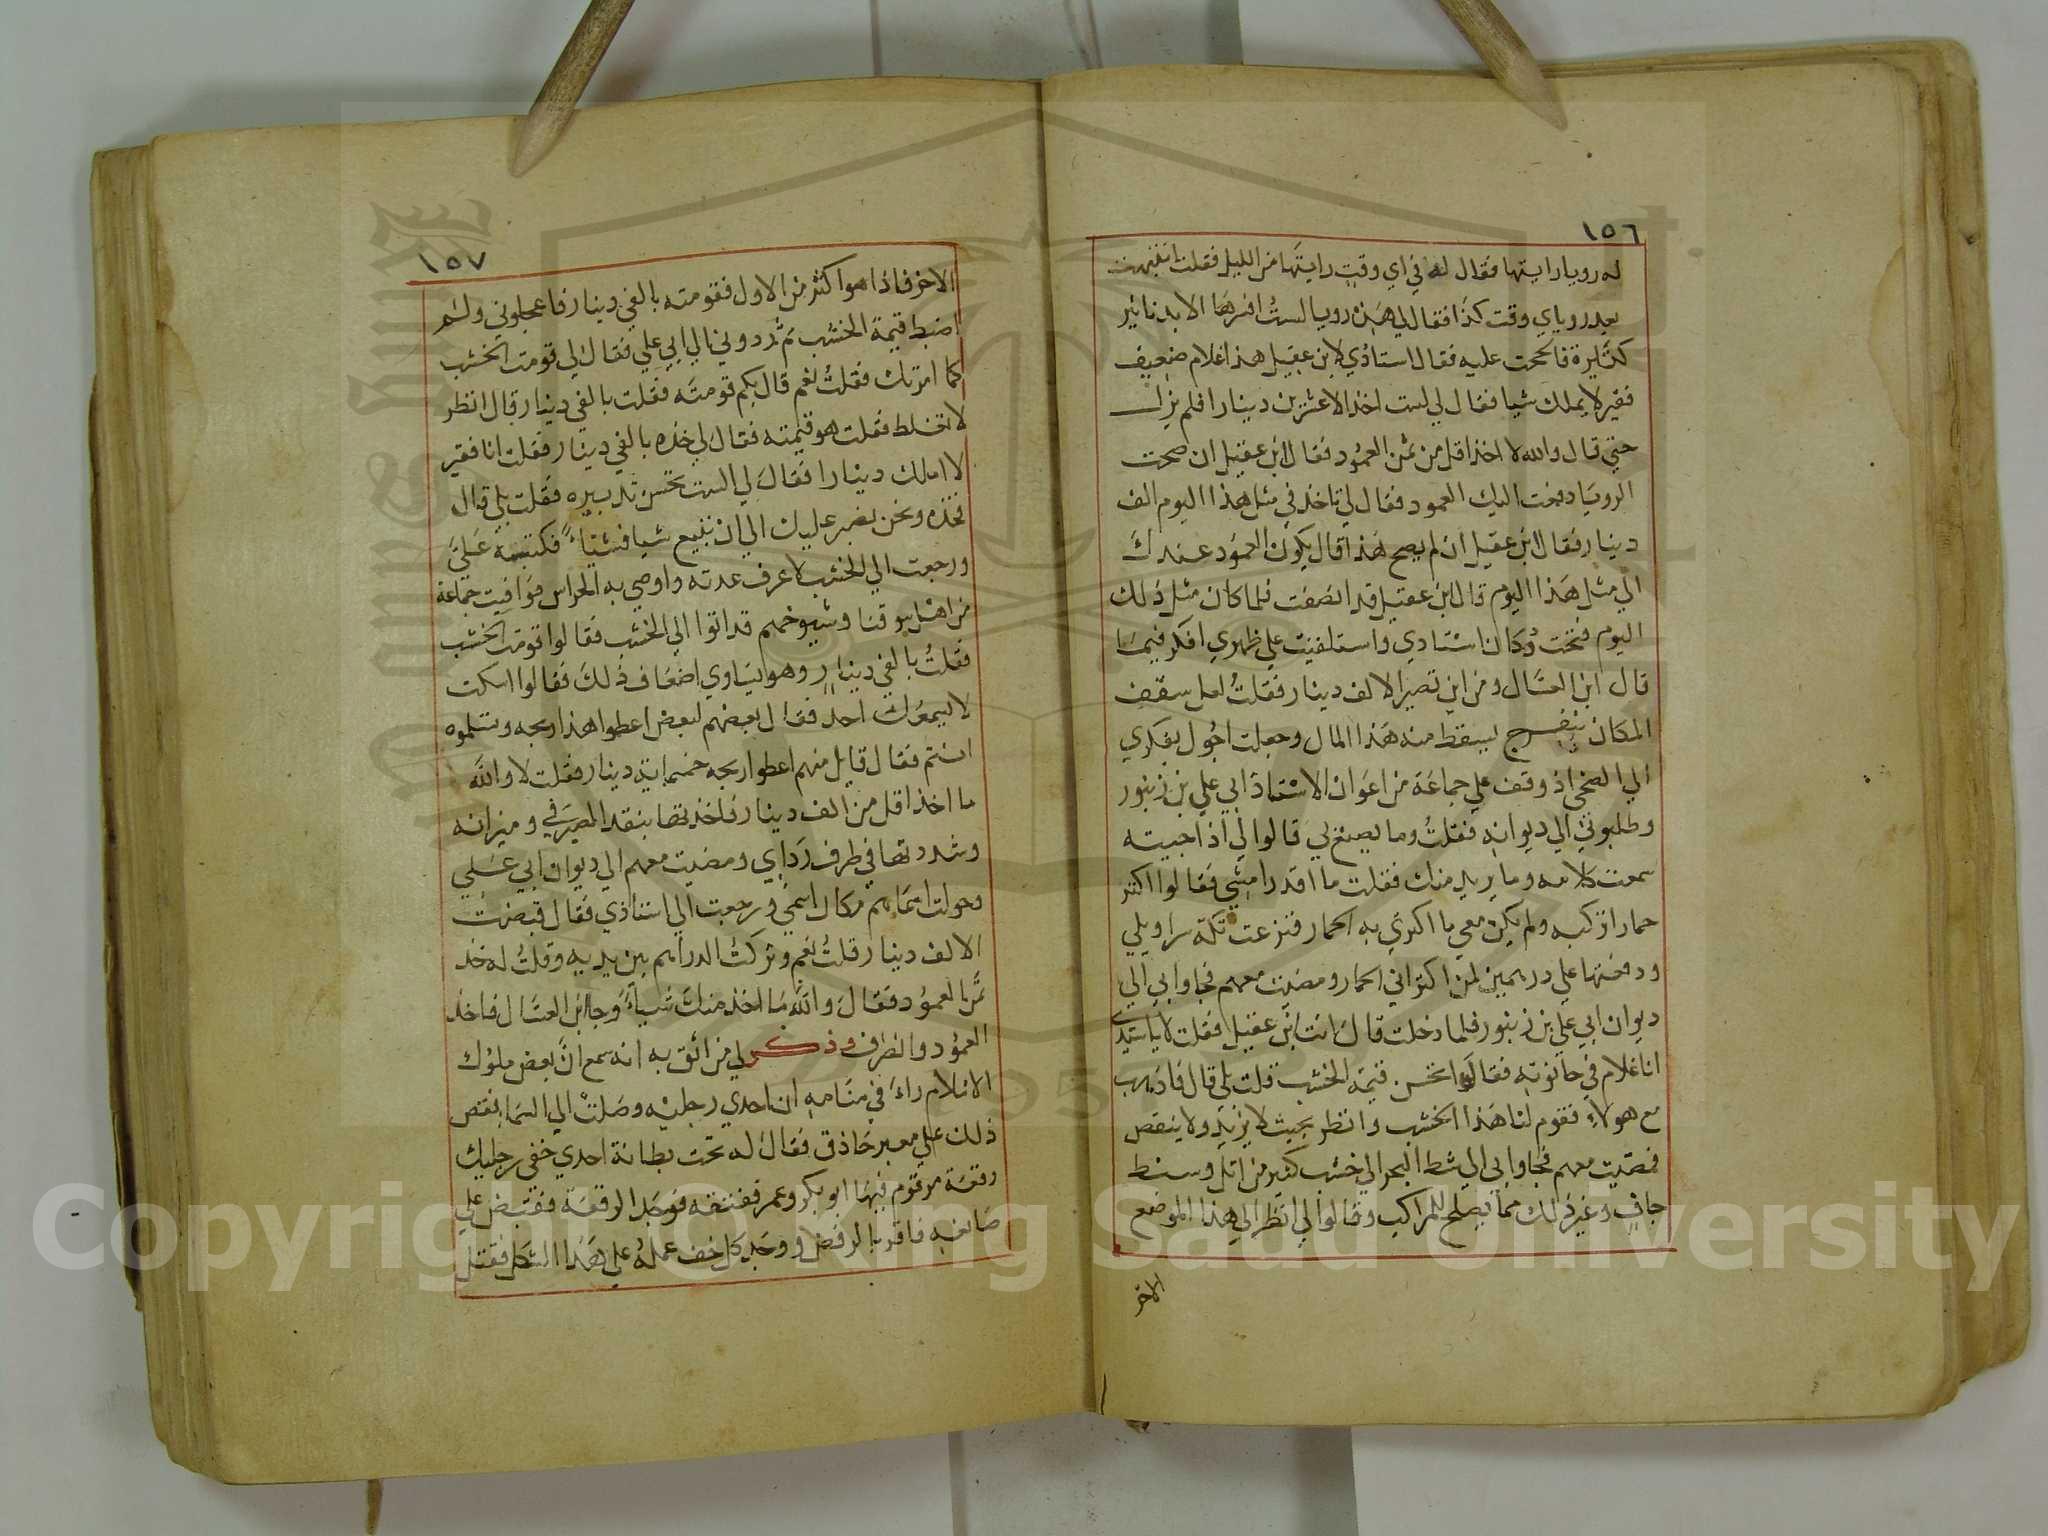 ١٥٦
له رويا رايتها فقال له في اي وقت رايتها من الليل فقلت انتبهت
بعد روياي وقت كذا فقال لي هذه رويا لست افسرها الا بدنانير
كثيرة فالححت عليه فقال استاذي لابن عقيل هذا غلام ضعيف
فقير لا يملك شيا فقال لي لست اخذ الا عشرين دينارا فلم يزل
حتي قال والله لا اخذ اقل من ثمن العمود فقال ابن عقيل ان صحت
الرويا دفعت اليك العمود فقال لي تاخذ في مثل هذا اليوم الف
دينار فقال ابن عقيل ان لم يصح هذا قال يكون العمود عندك
الي مثل هذا اليوم قال ابن عقيل قد انصفت فلما كان مثل ذلك
اليوم فتحت دكان استادي واستلقيت علي ظهري افكر فيما
قال ابن العسال ومن اين تصير الالف دينار فقلت لعل سقف
المكان ينفرج ليسقط منه هذا المال وجعلت اجول بفكري
الي الضحي اذ وقف علي جماعة من اعوان الاستاذ ابي علي بن زنبور
وطلبوني الي ديوانه فقلت وما يصنع بي قالوا لي اذا جيته
سمعت كلامه وما يريد منك فقلت ما اقدر امشي فقالوا اكتر
حمارا تركبه ولم يكن معي ما اكتري به الحمار فنزعت تكة سراويلي
ودفعتها علي درهمين لمن اكتراني الحمار ومضيت معهم فجاوا بي الي
ديوان ابي علي بن زنبور فلما دخلت قال انت ابن عقيل فقلت لا يا سيدي
انا غلام في حانوته فقال اتحسن قيمة الخشب قلت بلي قال فاذهب
مع هولاء فقوم لنا هذا الخشب وانظر بحيث لا يزيد ولا ينقص
فمضيت معهم فجاوا بي الي شط البحر الي خشب كثير من اثل وسنط
جاف وغير ذلك مما يصلح للمراكب وقالوا لي انظر الي هذا الموضع
الاخر
١٥٧
الاخر فاذا هو اكثر من الاول فقومته بالفي دينار فاعجلوني ولم
اضبط قيمة الخشب ثم ردوني الي ابي علي فقال لي قومت الخشب
كما امرتك فقلت نعم قال بكم قومته فقلت بالفي دينار قال انظر
لا تغلط فقلت هو قيمته فقال لي خذه بالفي دينار فقلت انا فقير
لا املك دينارا فقال لي الست تحسن تدبيره فقلت بلي قال
فخذه ونحن نصبر عليك الي ان تبيع شيا فشياء فكتبه علي
ورجعت الي الخشب لاعرف عدته واوصي به الحراس فوافيت جماعة
من اهل سوقنا وشيوخهم قد اتوا الي الخشب فقالوا قومت الخشب
فقلت بالفي دينار وهو يساوي اضعاف ذلك فقالوا اسكت
لا يسمعك احد فقال بعضهم لبعض اعطوا هذا ربحه وتسلموه
انتم فقال قايل منهم اعطوا ربحه خمسماية دينار فقلت لا والله
ما اخذ اقل من الف دينار فاخذتها بنقد الصيرفي وميزانه
وشددتها في طرف رداي ومضيت معهم الي ديوان ابي علي
وحولت اسمايهم مكان اسمي ورجعت الي استاذي فقال قبضت
الالف دينار قلت نعم وتركت الدراهم بين يديه وقلت له خذ
ثمن العمود فقال والله ما اخذ منك شياء وجا ابن العسال فاخذ
العمود وانصرف وذكر لي من اثق به انه سمع ان بعض ملوك
الاسلام راء في منامه ان احدي رجليه وصلت الي السما فقص
ذلك علي معبر حاذق فقال له تحت بطانة احدي خفي رجليك
رقعة مرقوم فيها ابو بكر وعمر ففتقه فوجد الرقعة فقبض علي
صانعه فاقر بالرفض ووجد كل خف عمله علي هذا الشكل فقتل
Copyright © King Saud University
1957